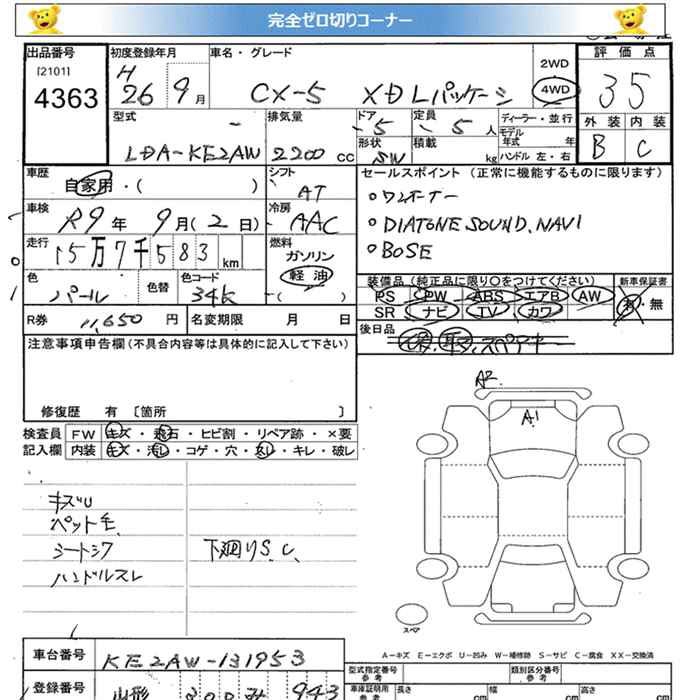 完全ゼロ切りコーナー
出品番号 初度登録年月 車名・グレード 評価点
[2101] 4363
H 26 9月 CX-5 XD Lパッケージ 2WD 4WD 35
型式 排気量 ドア 定員 ディーラー・並行 外装 内装
LDA-KE2AW 2200 CC 5 5 人 モデル年式 年 B C
形状 SW 積載 kg ハンドル 左・右
車歴 自家用・( ) シフト AT セールスポイント (正常に機能するものに限ります)
車検 R9年 9月(2日) 冷房 AAC
。ワンオーナー
。DIATONE SOUND.NAVI
。BOSE
走行 15万7千583km 燃料 ガソリン 軽油 ( )
色 パール 色替 色コード 34K
装備品 (純正品に限り○をつけてください) 新車保証書
PS PW ABS エアB AW 有・無
SR ナビ TV カワ
R券 11,650円 名変期限 月 日
後日品
注意事項申告欄 (不具合内容等は具体的に記入して下さい)
修復歴 有 〔箇所 〕
検査員 FW キズ・飛石・ヒビ割・リペア跡・×要
記入欄 内装 キズ・汚レ・コゲ・穴・スレ・キレ・破レ
A2
A1
キズU
ペット毛
シートシワ 下廻りS.C.
ハンドルスレ
スペア
A−キズ E−エクボ U−凹み W−補修跡 S−サビ C−腐食 XX−交換済
車台番号 KE2AW-131953
型式指定番号 参考 類別区分番号 参考
登録番号 山形 943
車庫証明用 参考 長さ cm 幅 cm 高さ cm